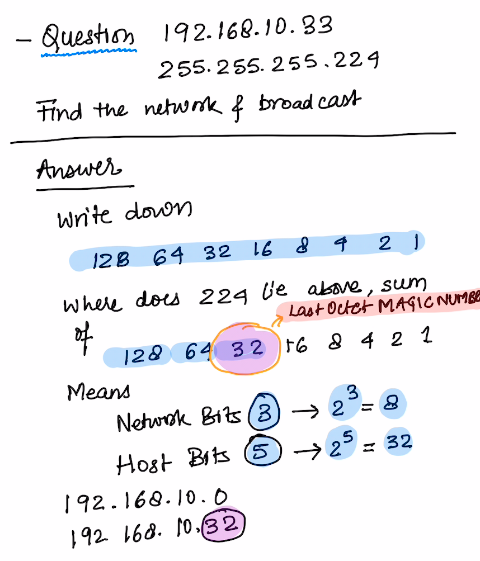 - Question 192.168.10.33
255.255.255.224
Find the network & broadcast
Answer
Write down
128 64 32 16 8 4 2 1
Where does 224 lie above, sum
Last Octet MAGIC NUMBE
of
128 64 32 16 8 4 2 1
Means
Network Bits 3 → 2^3 = 8
Host Bits 5 → 2^5 = 32
192.168.10.0
192 168. 10.32